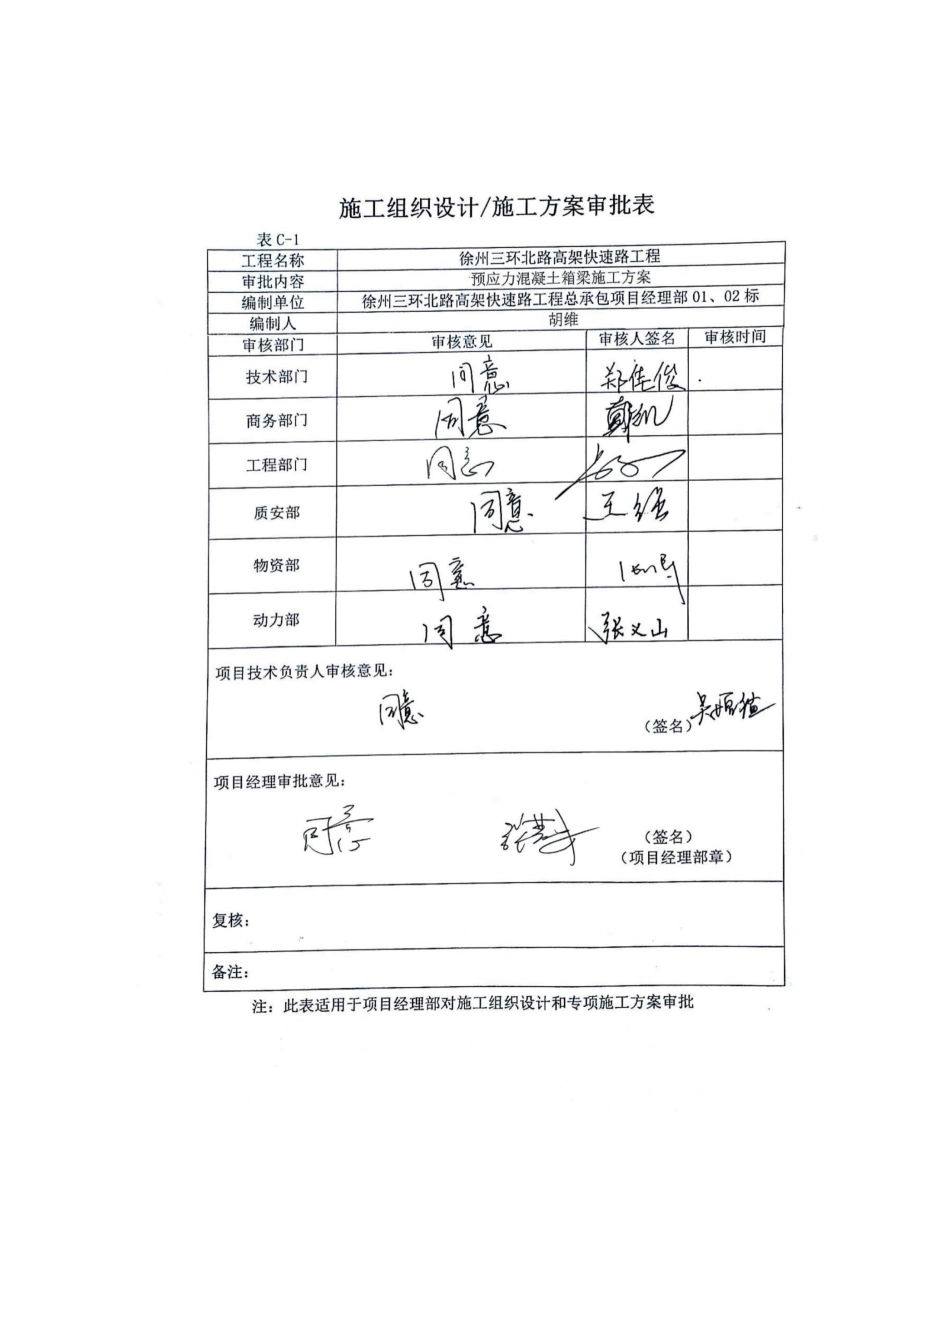 施工组织设计/施工方案审批表
表 C-1
工程名称 徐州三环北路高架快速路工程
审批内容 预应力混凝土箱梁施工方案
编制单位 徐州三环北路高架快速路工程总承包项目经理部 01、02 标
编制人 胡维
审核部门 审核意见 审核人签名 审核时间
技术部门 同意 郑佳俊
商务部门 同意
工程部门 同意
质安部 同意 王强
物资部 同意
动力部 同意 张义山
项目技术负责人审核意见：
同意
（签名）
项目经理审批意见：
同意
（签名）
（项目经理部章）
复核：
备注：
注：此表适用于项目经理部对施工组织设计和专项施工方案审批